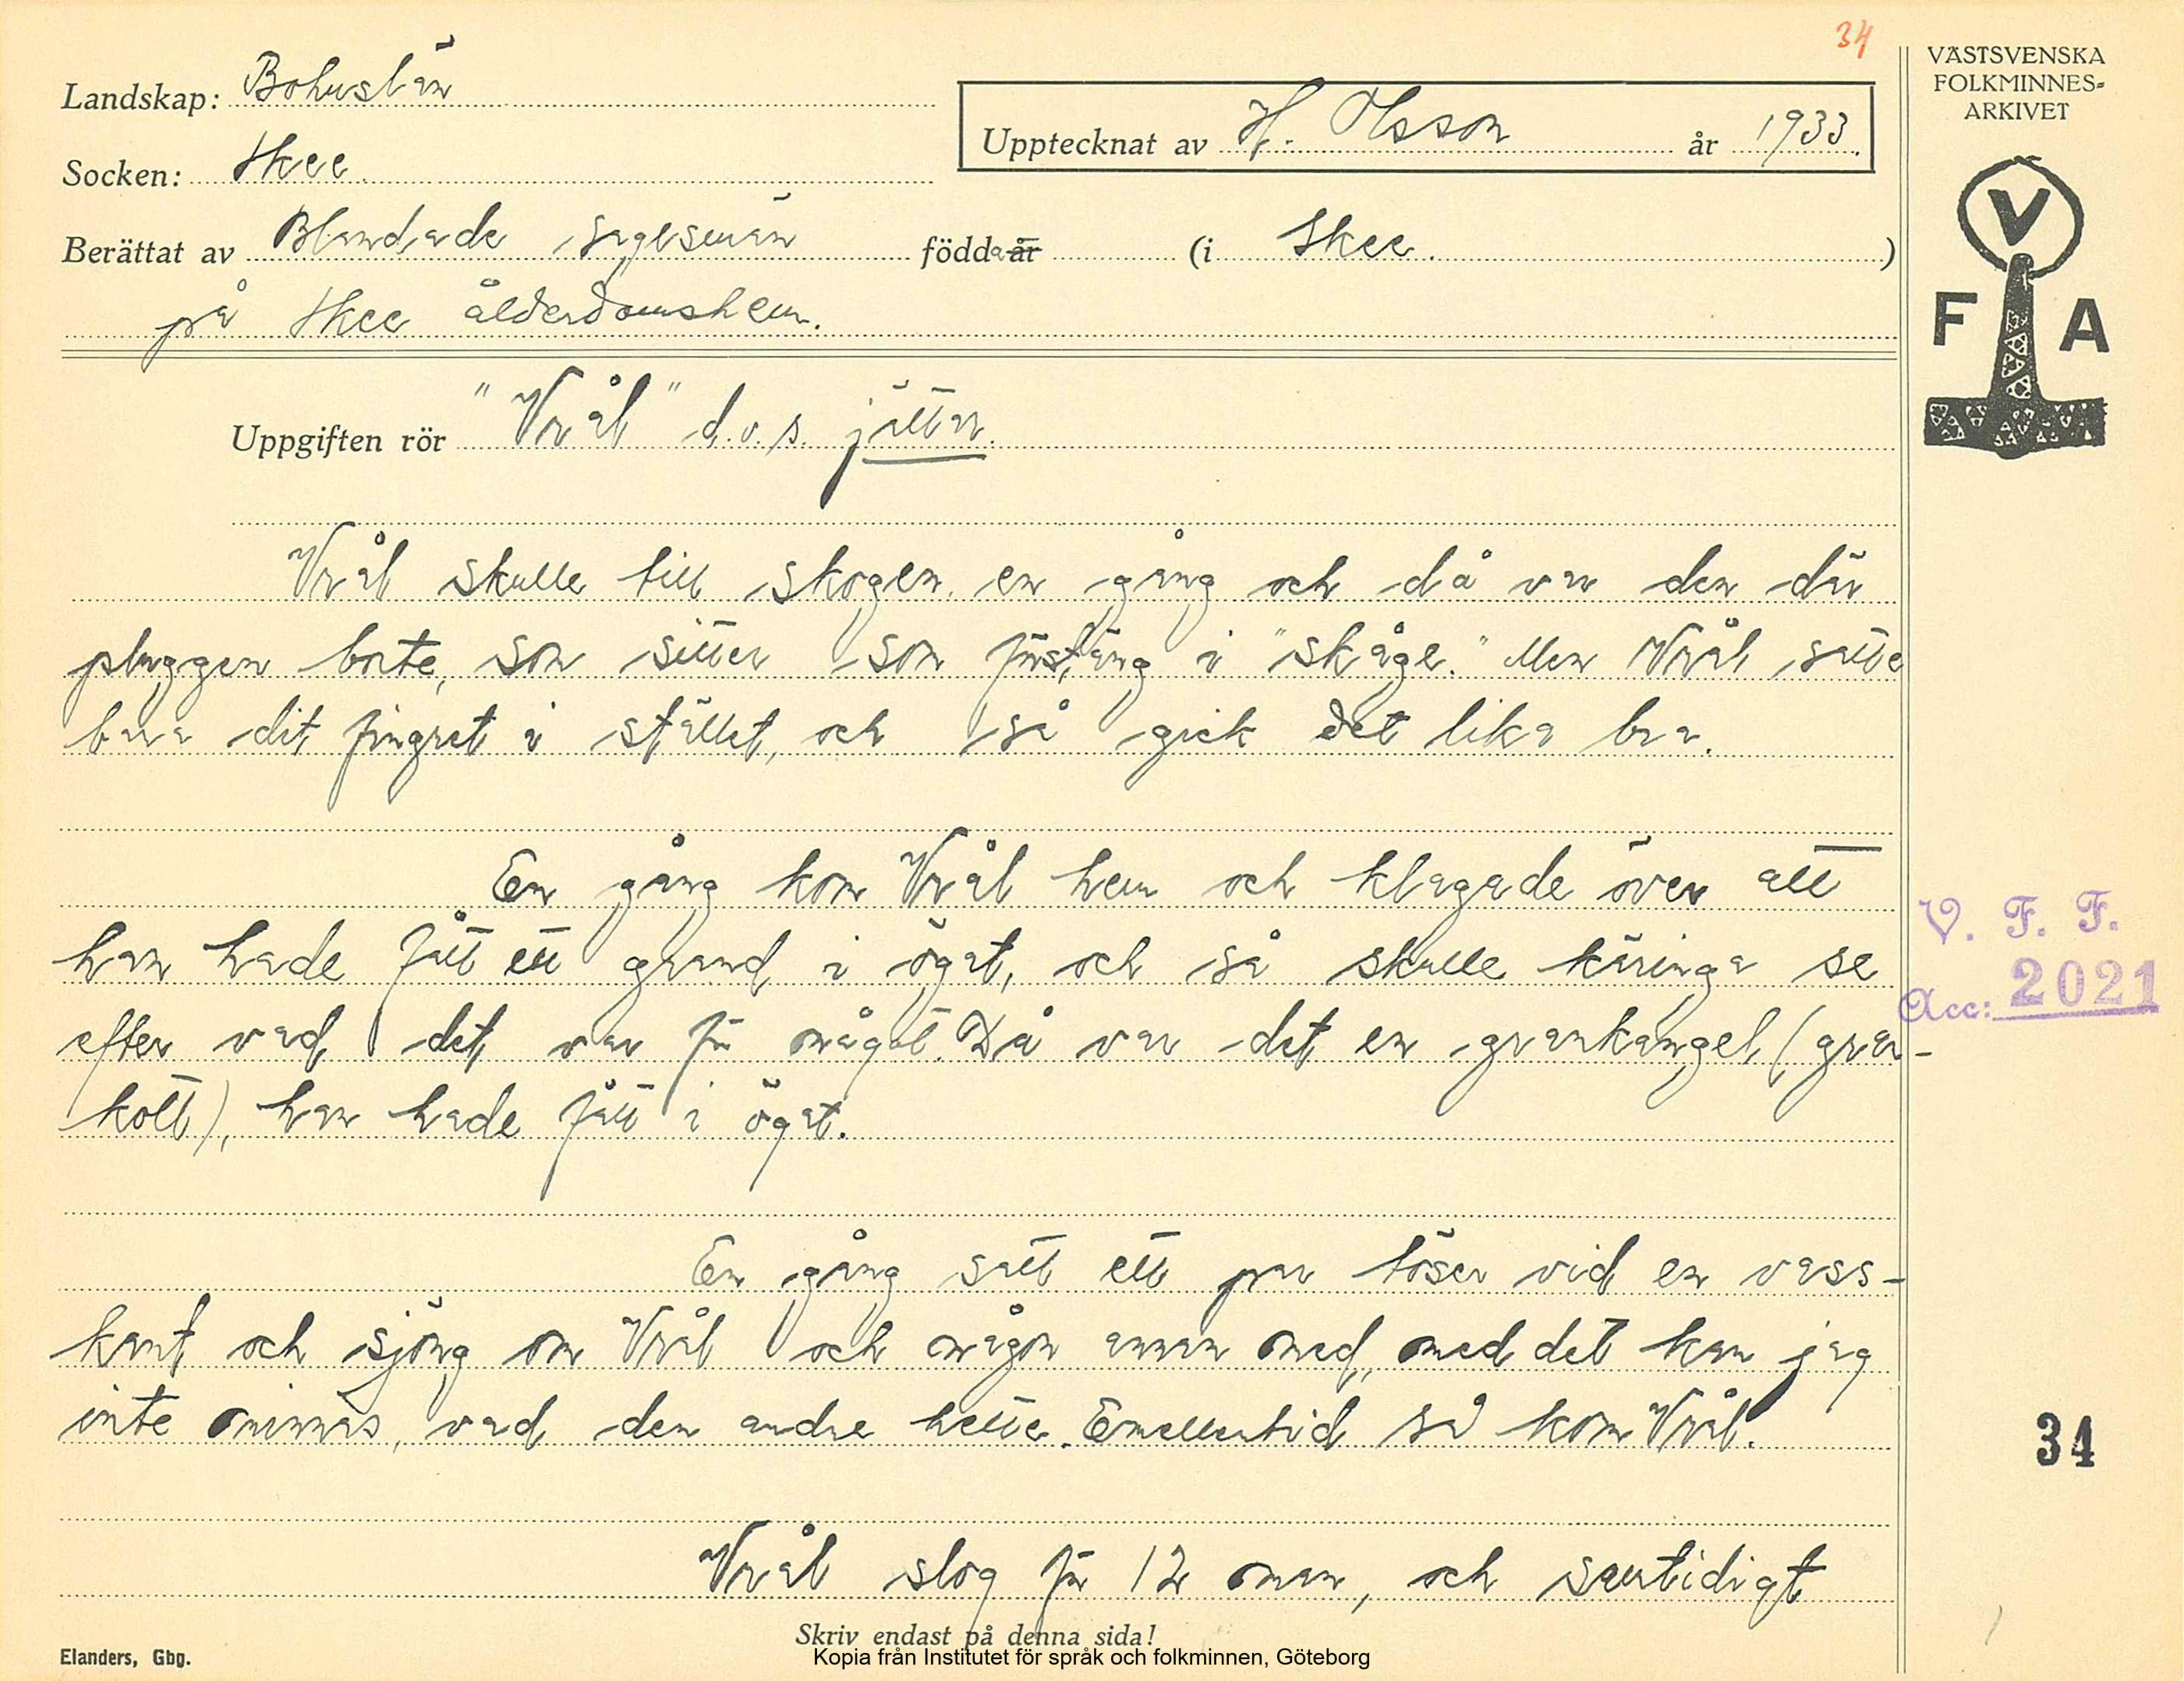 34
VÄSTSVENSKA
FOLKMINNES-
ARKIVET
Landskap: Bohuslän
Upptecknat av H. Olsson år 1933.
Socken: Skee.
Berättat av Blandade sagesmän födda år (i Skee.)
på Skee ålderdomshem.
V
F A
Uppgiften rör "Vrål" d.v.s. jätten.
Vrål skulle till skogen en gång och då var den där
pluggen borte, som sitter som förstäng i "skåge." Men Vrål satte
bara dit fingret i stället, och så gick det lika bra.
En gång kom Vrål hem och klagade över att
han hade fått ett grand i ögat, och så skulle käringa se
efter vad det var för något. Då var det en grankangel (gran-
kott), han hade fått i ögat.
V. F. F.
Acc: 2021
En gång satt ett par töser vid en vass-
kant och sjöng om Vrål och någon annan med, med det kan jag
inte minnas, vad den andre hette. Emellertid så kom Vrål.
34
Vrål slog för 12 man, och samtidigt
Skriv endast på denna sida!
Elanders, Gbg.
Kopia från Institutet för språk och folkminnen, Göteborg